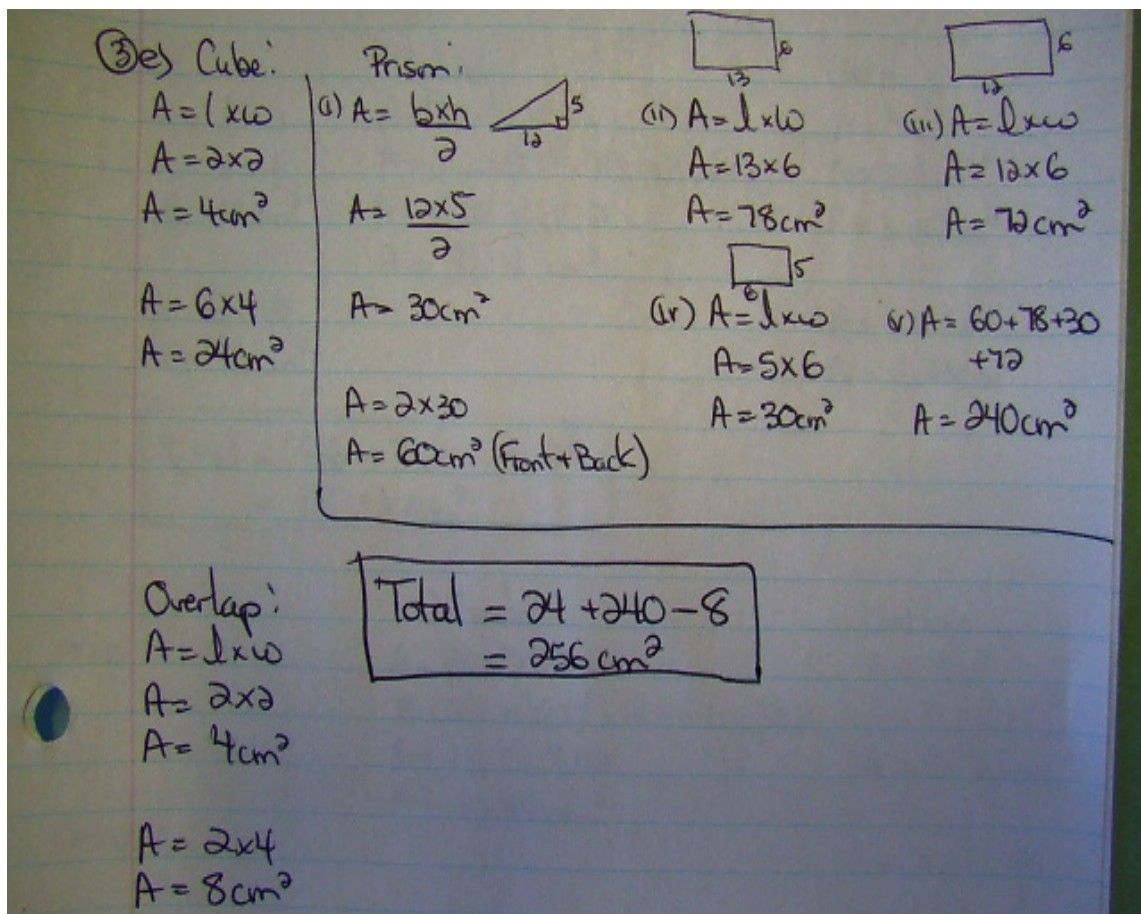 ③e) Cube:
A = l x w
A = 2 x 2
A = 4cm²
A = 6 x 4
A = 24cm²
Prism:
(i) A = b x h / 2
5
12
A = 12 x 5 / 2
A = 30cm²
A = 2 x 30
A = 60cm² (Front + Back)
6
13
(ii) A = l x w
A = 13 x 6
A = 78cm²
6
12
(iii) A = l x w
A = 12 x 6
A = 72cm²
5
6
(iv) A = l x w
A = 5 x 6
A = 30cm²
(v) A = 60 + 78 + 30
+ 72
A = 240cm²
Overlap:
A = l x w
A = 2 x 2
A = 4cm²
A = 2 x 4
A = 8cm²
Total = 24 + 240 - 8
= 256 cm²